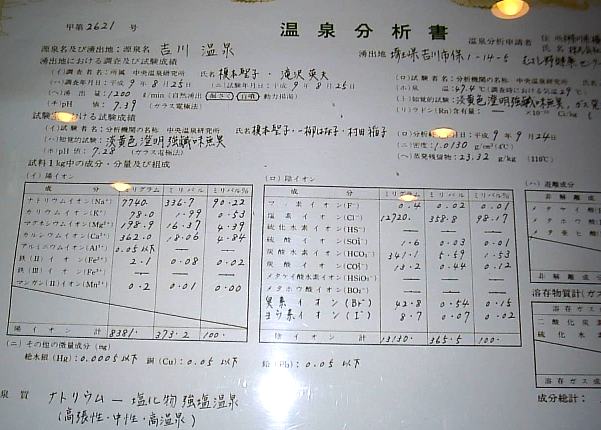 甲第2621号
温泉分析書
温泉分析申請者 住
氏名 株式会社
源泉名及び湧出地:源泉名 吉川 温泉 湧出地 埼玉県吉川市保1-14-5
湧出地における調査及び試験成績
(イ)調査者名:所属 中央温泉研究所 氏名 榎本聖子・滝沢英夫
(ロ)調査年月日:平成 9年 8月25日
(ハ)湧出量:1200 ℓ/min(自然湧出・掘さく・自噴・動力揚湯)
(ホ)泉温:49.4℃(調査時における気温29℃)
(ヘ)知覚的試験:淡黄色澄明強鹹味無臭、ガス発
(チ)pH値 7.39 (ガラス電極法)
(リ)ラドン(Rn)含量:
試験室における試験成績
(イ)試験者:分析機関の名称 中央温泉研究所 氏名 榎本聖子・柳沢布子・村田裕子
(ロ)分析終了年月日:平成 9年 9月24日
(ハ)知覚的試験:淡黄色澄明強鹹味無臭
(ニ)密度:1.0130 g/cm³(4℃)
(ホ)pH値:7.28 (ガラス電極法)
(ヘ)蒸発残留物:23.32 g/kg (110℃)
試料1kg中の成分・分量及び組成
(イ)陽イオン
成分 ミリグラム ミリバル ミリバル%
ナトリウムイオン(Na⁺) 7740. 336.7 90.22
カリウムイオン(K⁺) 78.0 1.99 0.53
マグネシウムイオン(Mg²⁺) 198.9 16.37 4.39
カルシウムイオン(Ca²⁺) 362.0 18.06 4.84
アルミニウムイオン(Al³⁺) 0.05以下
鉄(II)イオン(Fe²⁺) 2.1 0.08 0.02
鉄(III)イオン(Fe³⁺) — — —
マンガン(II)イオン(Mn²⁺) 0.2 0.01 0.00
陽イオン計 8381. 373.2 100.
(ロ)陰イオン
成分 ミリグラム ミリバル ミリバル%
フッ素イオン(F⁻) 0.4 0.02 0.01
塩素イオン(Cl⁻) 12720. 358.8 98.17
硫化水素イオン(HS⁻) — — —
硫酸イオン(SO₄²⁻) 1.6 0.03 0.01
炭酸水素イオン(HCO₃⁻) 341.1 5.59 1.53
炭酸イオン(CO₃²⁻) 13.2 0.44 0.12
メタケイ酸水素イオン(HSiO₃⁻) — — —
メタホウ酸イオン(BO₂⁻) — — —
臭素イオン(Br⁻) 42.8 0.54 0.15
ヨウ素イオン(I⁻) 8.7 0.07 0.02
陰イオン計 13130. 365.5 100.
(ハ)遊離成分
非解離成
メタケイ酸
メタホウ酸
メタ亜ヒ酸
非解離成
溶存物質計(ガ
溶存ガス成
二酸化炭素
硫化水
溶存ガス成
成分総計:
(ニ)その他の微量成分(mg)
総水銀(Hg):0.0005以下 銅(Cu):0.05以下 鉛(Pb):0.05以下
泉質 ナトリウム—塩化物強塩温泉
(高張性・中性・高温泉)